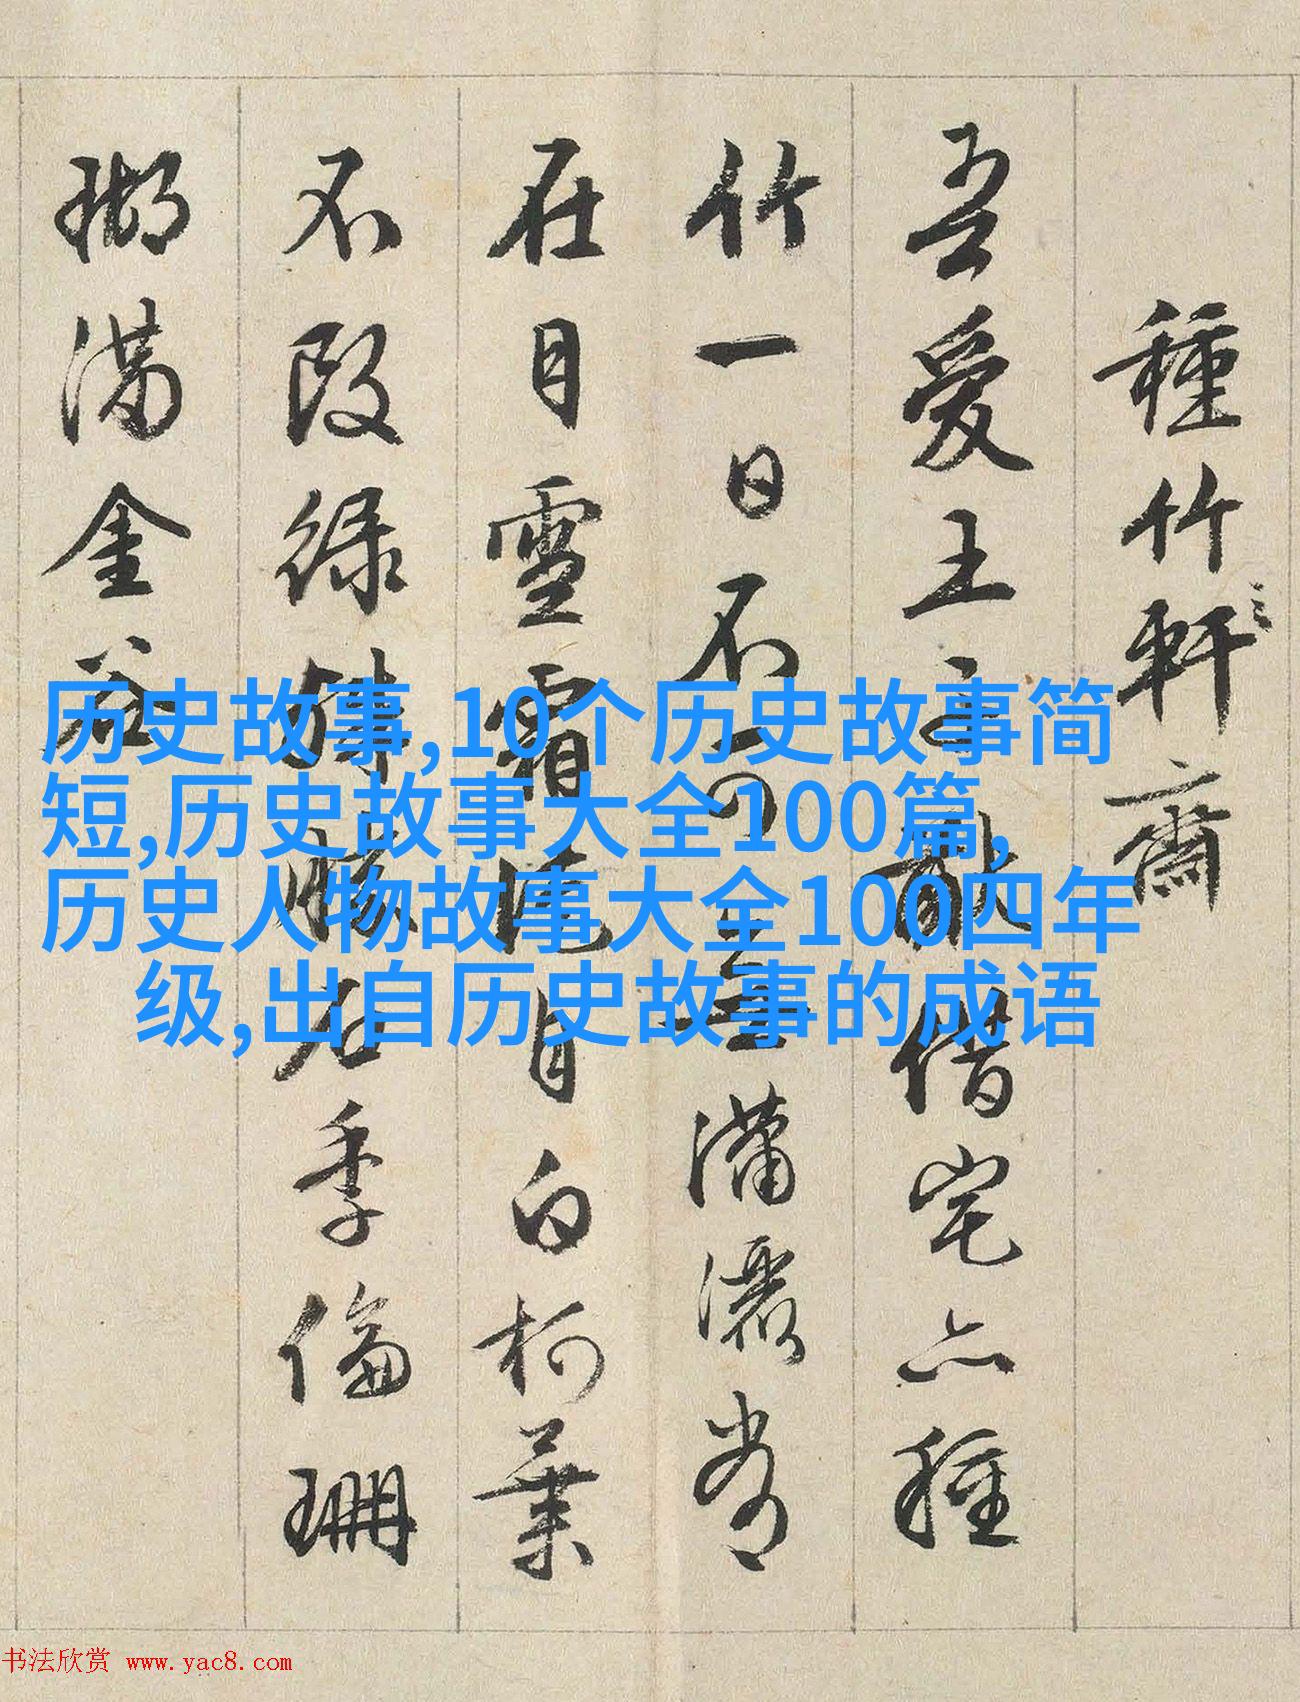 種竹軒齋
三
吾愛王子猷借宅亦種
竹一日不可無瀟灑常
在目雪霜徒自白柯葉
不改綠殊勝石季倫珊
瑚滿金谷
历史故事,10个历史故事简
短,历史故事大全100篇,
历史人物故事大全100四年
级,出自历史故事的成语
书法欣赏 www.yac8.com